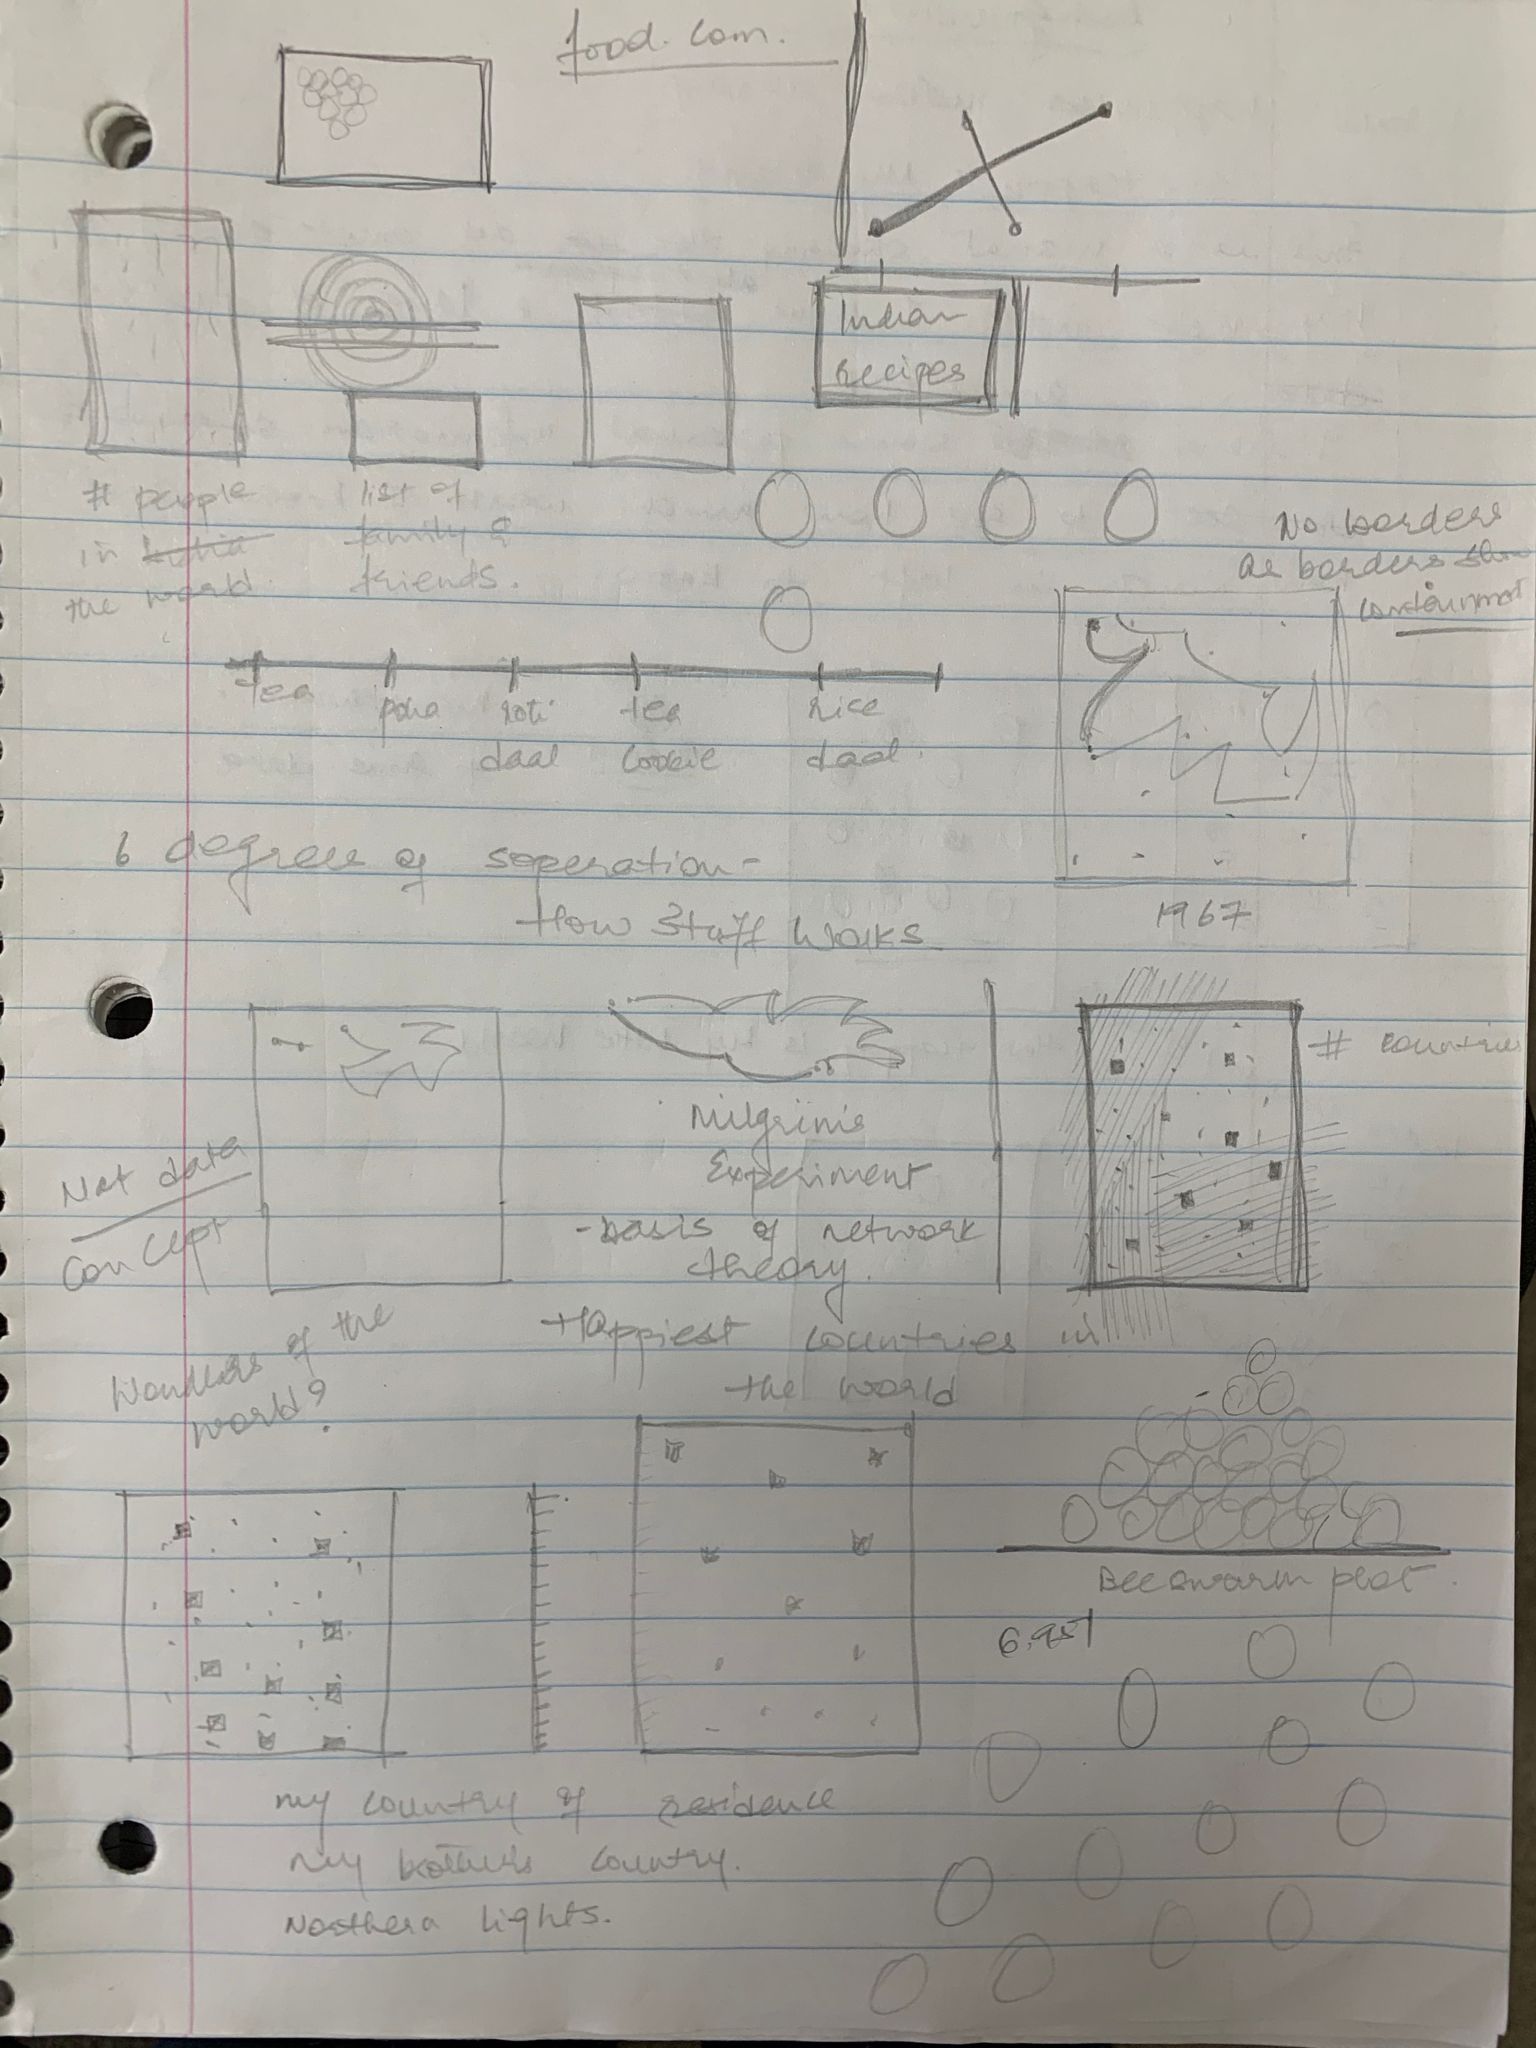 food.com.
Indian
recipes
# people
in India
the world
list of
family &
friends.
No borders
as borders show
containment
tea
poha
roti
daal
tea
cookie
rice
daal.
1967
6 degree of seperation -
How Stuff Works
# countries
Milgrim's
Experiment
- basis of network
theory.
Not data
Concept
Wonders of the
world?
Happiest countries in
the world
Beeswarm plot.
6.951
my country of residence
my brother's country.
Northern lights.